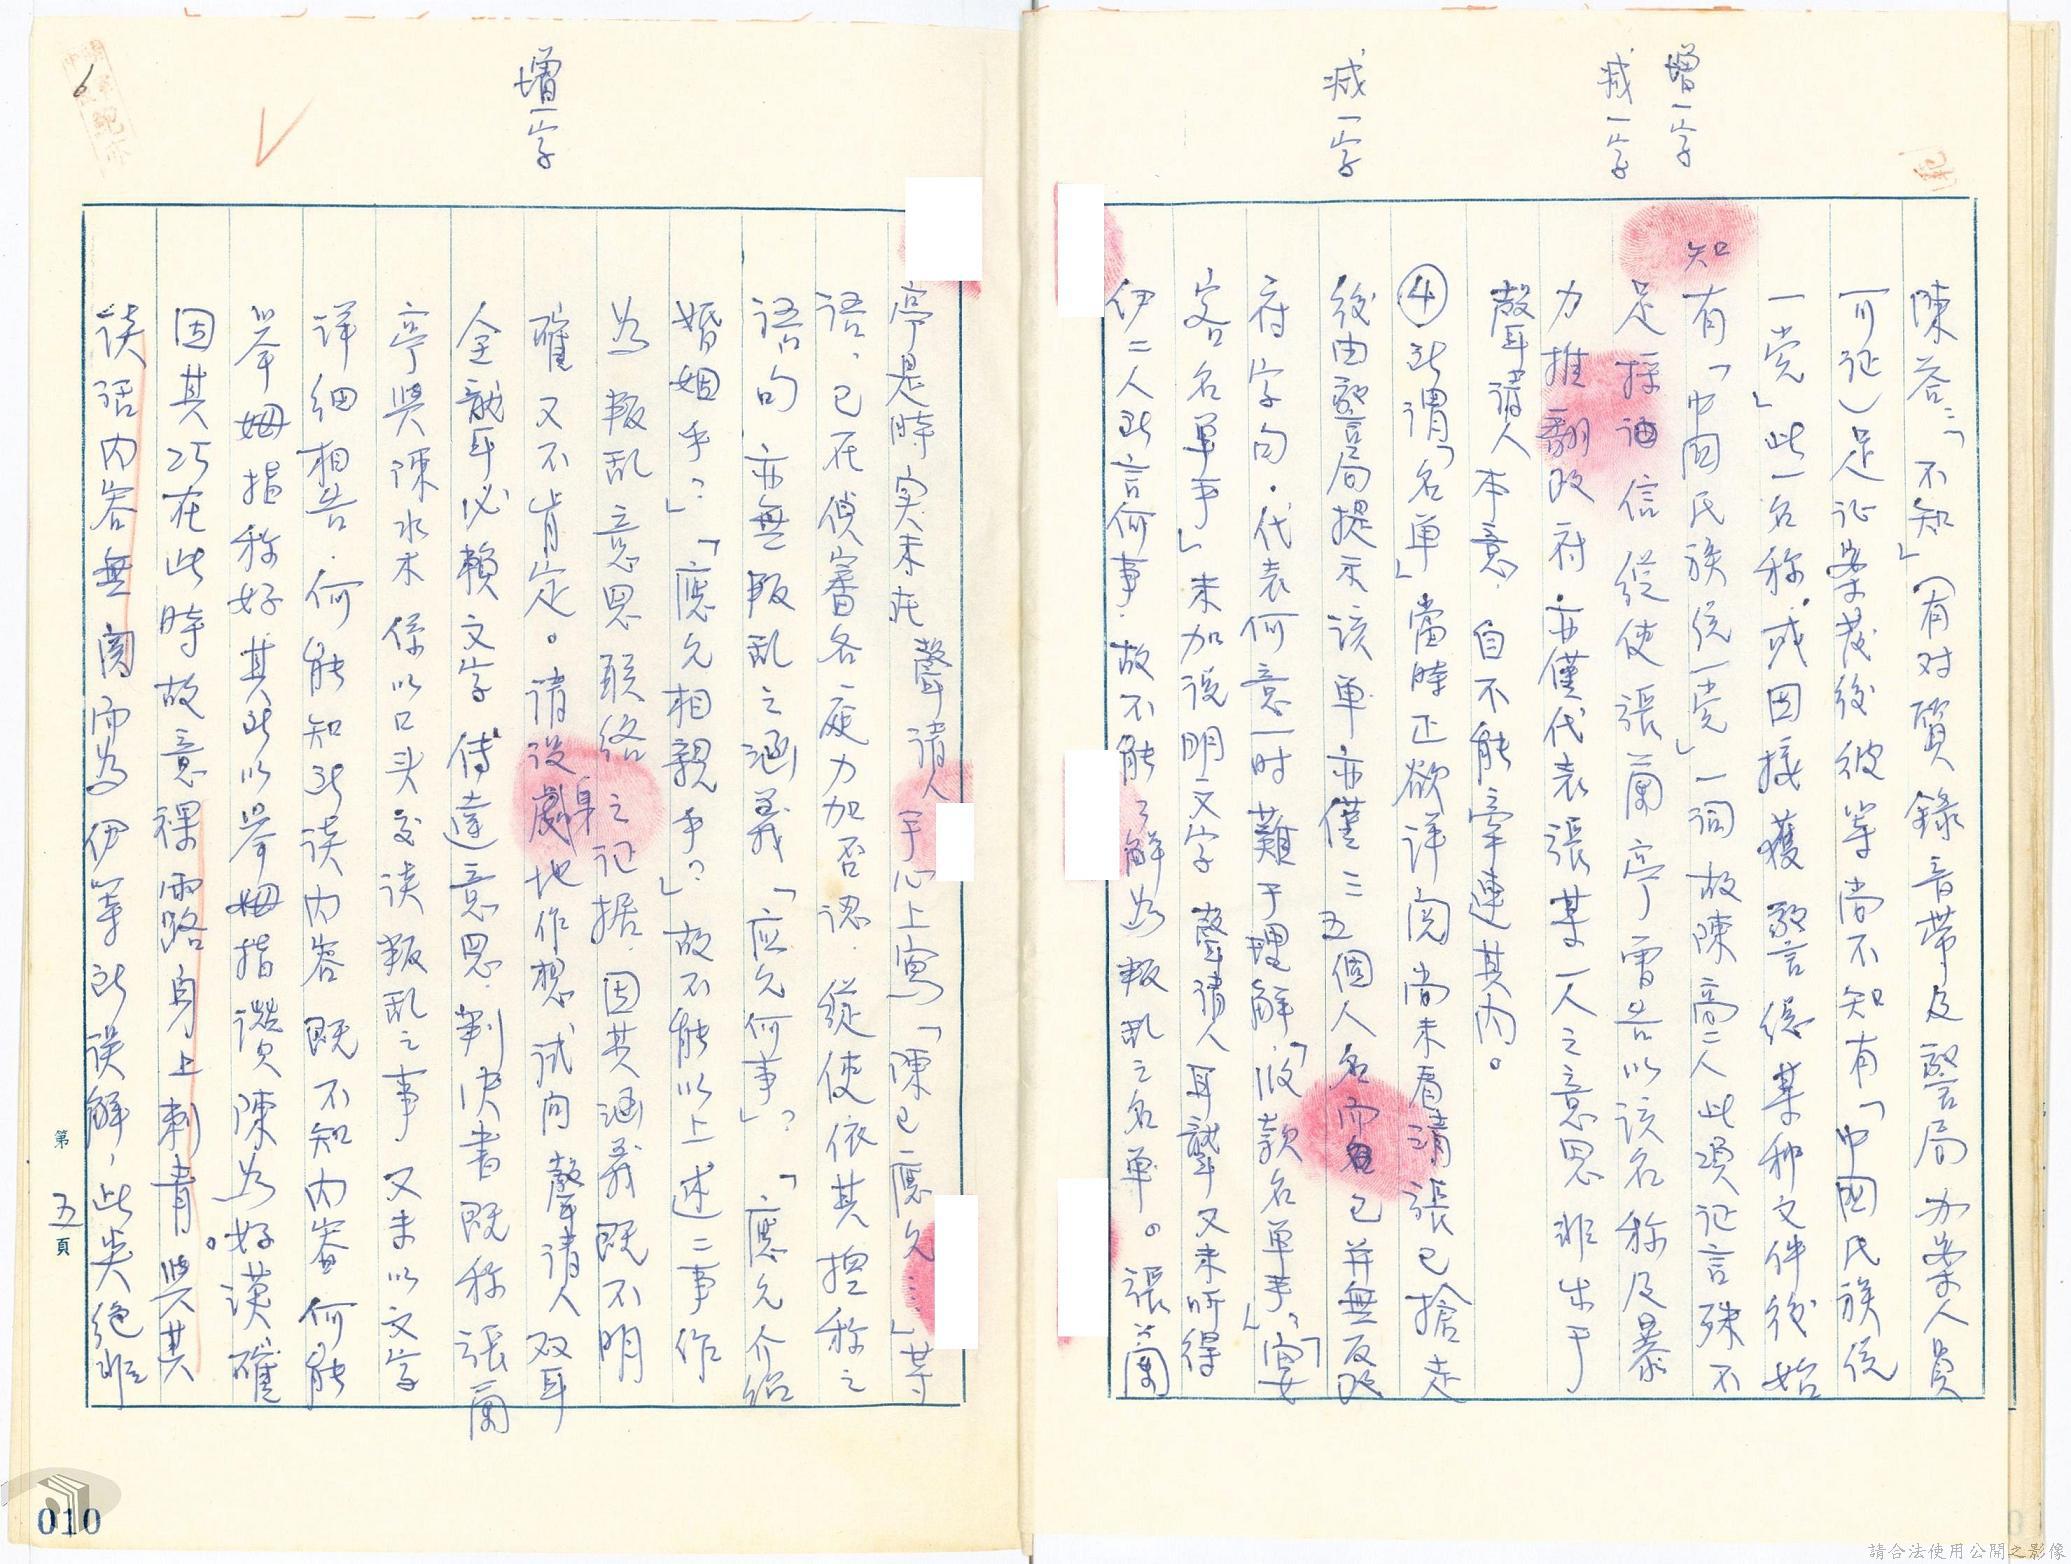 增一字
減一字
減一字
陳荅:「不知」(有对質錄音帶及警局办案人員
可证)足证案发後彼等尚不知有「中國民族統
一党」此一名称,或因接獲警总某种文件後始
知有「中國民族統一党」一詞故陳高二人此項证言殊不
足採信縱使張蘭亭曾告以该名称及暴
力推翻政府亦僅代表張某一人之意思非出于
聲请人本意,自不能牽連其內。
④所謂「名單」當時正欲详閱尚未看清張已搶走
後由警局提示该单亦僅三五個人名而已并無反政
府字句,代表何意一时難于理解「收款名單乎?」「宴
客名单乎」未加说明文字聲请人耳聾又未听得
伊二人所言何事,故不能了解為叛乱之名單。張蘭
增一字
亭是時实未在聲请人手心上寫「陳已應允…」等
語,已在偵審各庭力加否認,縱使依其揑称之
語句亦無叛乱之涵義「应允何事」?「應允介紹
婚姻乎?」「應允相親乎?」故不能以上述二事作
為叛乱意思联络之证据,因其涵義既不明
確又不肯定。请设身處地作想试问聲请人双耳
全聾耳必賴文字傳達意思,判决書既称張蘭
亭與陳水木係以口头交谈叛乱之事又未以文字
详细相告,何能知所谈內容既不知內容何能
举姆指称好其所以举姆指讚陳為好漢確
因其巧在此時故意裸露身上刺青與其
谈话內容無関而為伊等所误解,此矣絕非
第五頁
6
010
請合法使用公開之影像